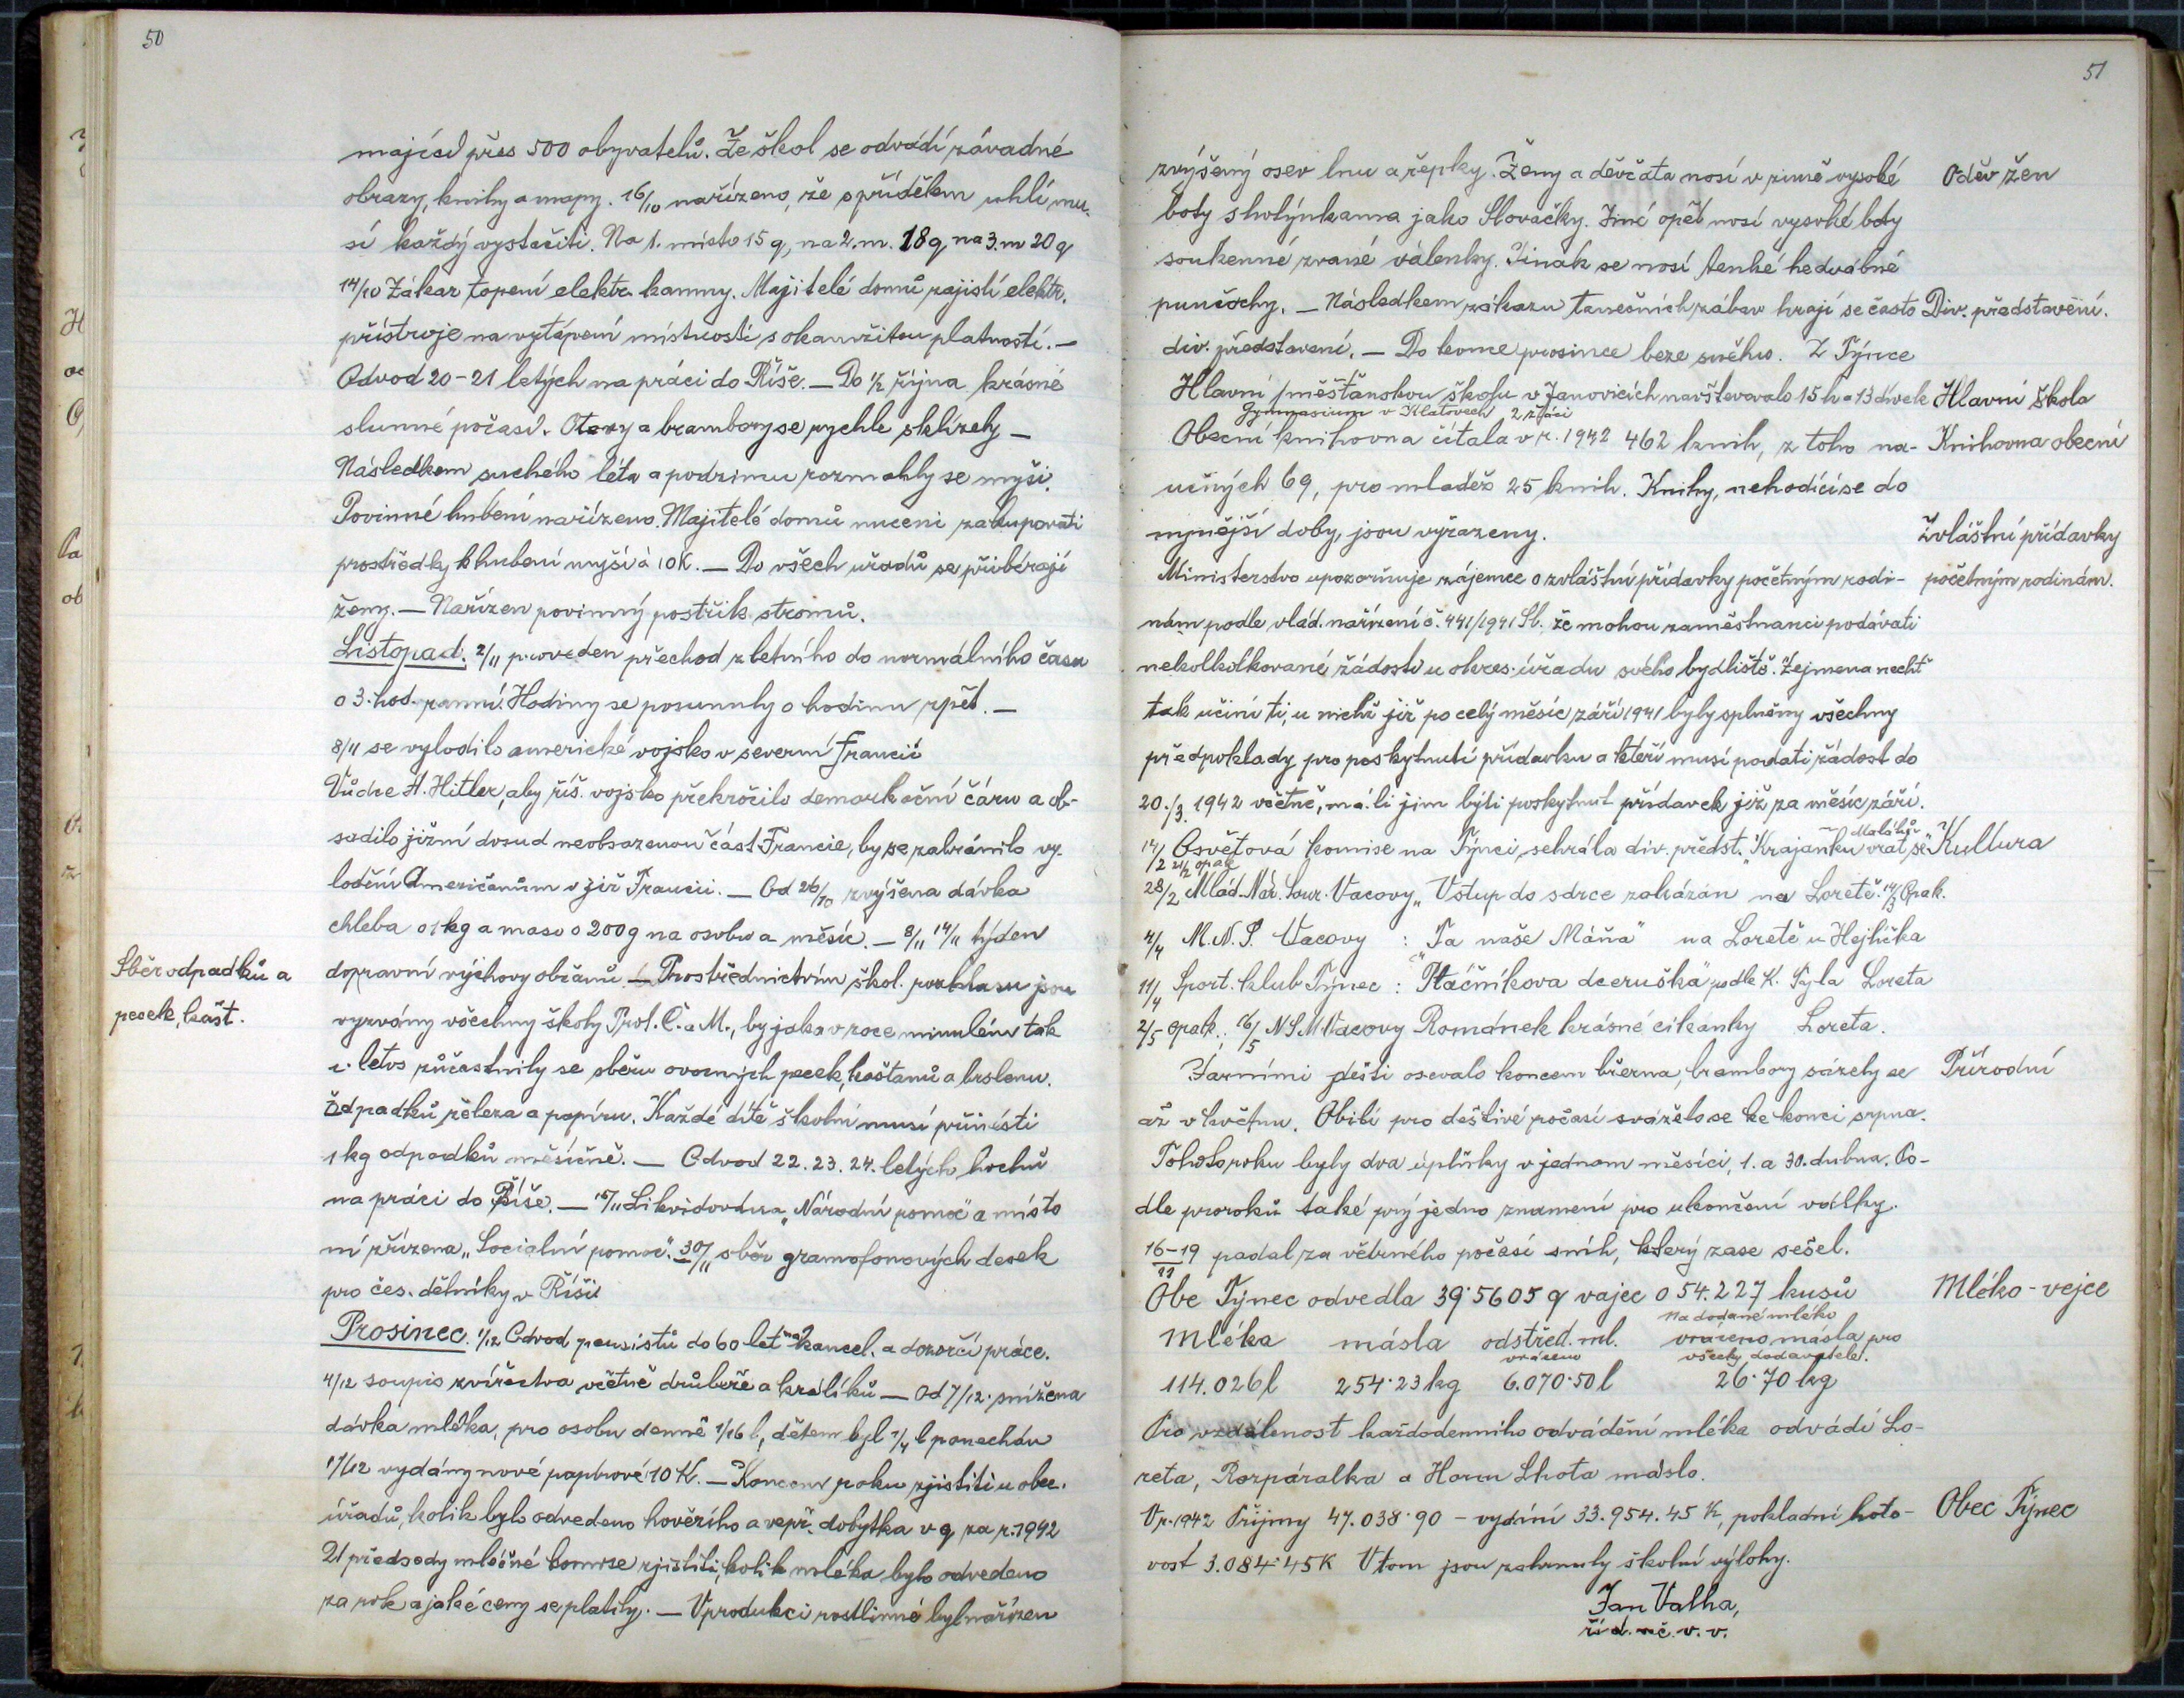 50
mající přes 500 obyvatelů. Ze škol se odvádí závadné
obrazy, knihy a mapy. 16/10 nařízeno, že s přídělem uhlí mu-
sí každý vystačiti. Na 1. místo 15 q, na 2. m. 18 q, na 3. m 20 q
14/10 Zákaz topení elektr. kamny. Majitelé domů zajistí elektr.
přístroje na vytápění místností s okamžitou platností. —
Odvod 20-21 letých na práci do Říše. — Do ½ října krásné
slunné počasí. Otavy a brambory se rychle sklízely —
Následkem suchého léta a podzimu rozmohly se myši.
Povinné hubení nařízeno. Majitelé domů nuceni zakupovati
prostředky k hubení myší à 10 K. — Do všech úřadů se přibírají
ženy. — Nařízen povinný postřik stromů.
Listopad. 2/11 proveden přechod z letního do normálního času
o 3. hod. ranní. Hodiny se posunuly o hodinu zpět. —
8/11 se vylodilo americké vojsko v severní Francii
Vůdce A. Hitler, aby říš. vojsko překročilo demarkační čáru a ob-
sadilo jižní dosud neobsazenou část Francie, by se zabránilo vy-
lodění Američanům v již Francii. — Od 26/10 zvýšena dávka
chleba o 1 kg a masa o 200 g na osobu a měsíc. — 8/11 14/11 týden
dopravní výchovy občanů — Prostřednictvím škol. rozhlasu jsou
Sběr odpadků a
pecek, kašt.
vyzvány všechny školy Prot. Č. a M., by jako v roce minulém tak
i letos zúčastnily se sběru ovocných pecek, kaštanů a brslenu.
odpadků železa a papíru. Každé dítě školní musí přinésti
1 kg odpadků měsíčně. — Odvod 22. 23. 24. letých hochů
na práci do Říše. — 15/11 Likvidována „Národní pomoc" a místo
ní zřízena „Sociální pomoc". 30/11 sběr gramofonových desek
pro čes. dělníky v Říši
Prosinec. 1/12 Odvod pensistů do 60 let na kancel. a dozorčí práce.
4/12 soupis zvířectva včetně drůbeže a králíků — Od 7/12. snížena
dávka mléka, pro osobu denně 1/16 l, dětem byl 1/4 l ponechán
17/12 vydány nové papírové 10 K. — Koncem roku zjistiti u obec.
úřadů, kolik bylo odvedeno hovězího a vepř. dobytka v q za r. 1942
U předsedy mléčné komise zjistiti, kolik mléka bylo odvedeno
za rok a jaké ceny se platily. — V produkci rostlinné byl nařízen
51
zvýšený osev lnu a řepky. Ženy a děvčata nosí v zimě vysoké
Oděv žen
boty s holýnkama jako Slovačky. Jiné opět nosí vysoké boty
soukenné zvané válenky. Jinak se nosí tenké hedvábné
punčochy. — Následkem zákazu tanečních zábav hrají se často
Div. představení.
div. představení. — Do konce prosince beze sněhu. Z Týnce
Hlavní /měšťanskou školu v Janovicích navštěvovalo 15 h a 13 dívek
Hlavní škola
Gymnasium v Klatovech 2 žáci
Obecní knihovna čítala v r. 1942 462 knih, z toho na-
Knihovna obecní
učných 69, pro mládež 25 knih. Knihy, nehodící se do
nynější doby, jsou vyřazeny.
Zvláštní přídavky
početným rodinám.
Ministerstvo upozorňuje zájemce o zvláštní přídavky početným rodi-
nám podle vlád. nařízení č. 441/1941 Sb. že mohou zaměstnanci podávati
nekolkolkované žádosti u okres. úřadu svého bydliště. Zejmena nechť
tak učiní ti, u nichž již po celý měsíc září 1941 byly splněny všechny
předpoklady pro poskytnutí přídavku a kteří musí podati žádost do
20./3. 1942 včetně, má-li jim býti poskytnut přídavek již za měsíc září.
14/2 Osvětová komise na Týnci sehrála div. předst. „Krajánku vrať se" Malákův
Kultura
21/2 opak
28/2 Mlád. Nár. Sour. Vacovy „Vstup do srdce zakázán na Loretě. 14/3 Opak.
4/4 M. N. S. Vacovy : „Ta naše Máňa" na Loretě u Hejlíčka
11/4 Sport. klub Týnec : „Ptáčníkova dceruška" podle K. Tyla Loreta
2/5 opak., 16/5 N S M Vacovy Románek krásné cikánky Loreta.
Jarními dešti osevalo koncem března, brambory sázely se
Přírodní
až v květnu. Obilí pro deštivé počasí sváželo se ke konci srpna.
Tohoto roku byly dva úplňky v jednom měsíci, 1. a 30. dubna. Po-
dle proroků také prý jedno znamení pro ukončení války.
16-19/11 padal za větrného počasí sníh, který zase sešel.
Obe Týnec odvedla 39·5605 q vajec o 54.227 kusů
Mléko - vejce
Na dodané mléko
Mléka másla odstřed. ml. vráceno másla pro
vráceno všechy dodavatele.
114.026 l 254·23 kg 6.070·50 l 26·70 kg
Pro vzdálenost každodenního odvádění mléka odvádí Lo-
reta, Rozpáralka a Horní Lhota máslo.
V r. 1942 Příjmy 47.038·90 - vydání 33.954.45 K, pokladní hoto-
Obec Týnec
vost 3.084·45 K V tom jsou zahrnuty školní výlohy.
Jan Valha,
říd. uč. v. v.